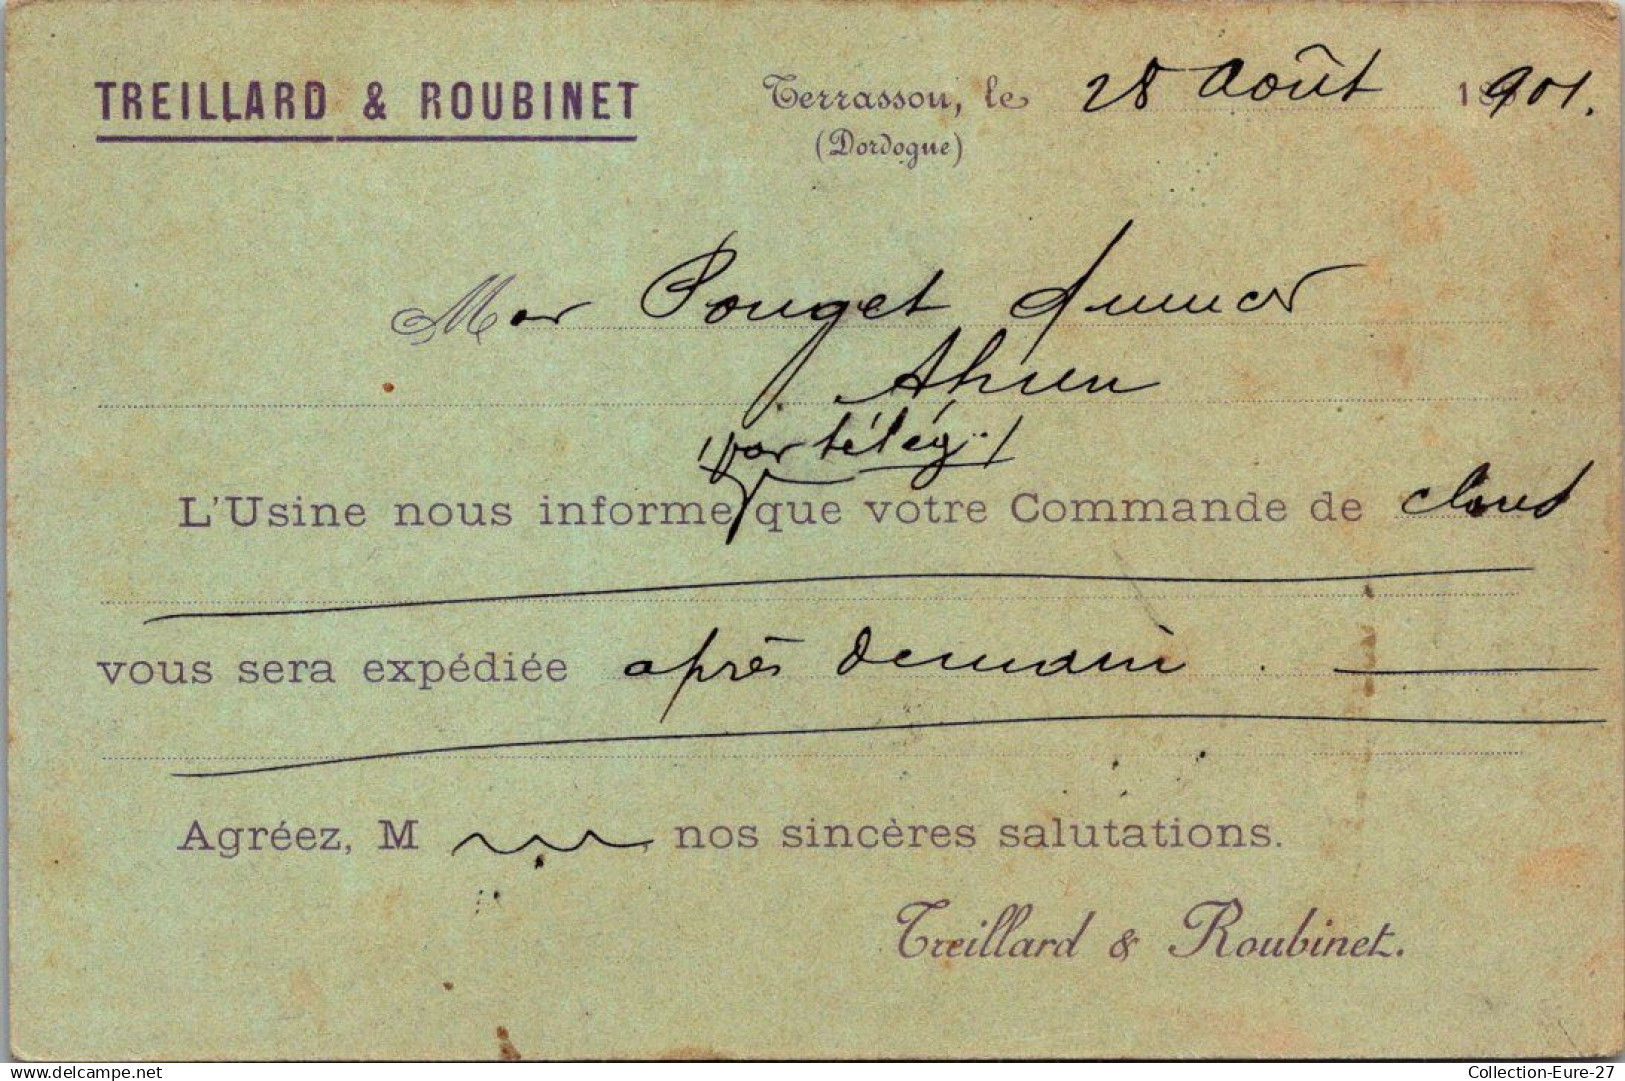 TREILLARD & ROUBINET
Terrasson, le 28 Août 1901.
(Dordogne)
Mor Pouget
Ahun
(par télég.)
L'Usine nous informe que votre Commande de clous
vous sera expédiée après demain.
Agréez, M nos sincères salutations.
Treillard & Roubinet.
Collection-Eure-27